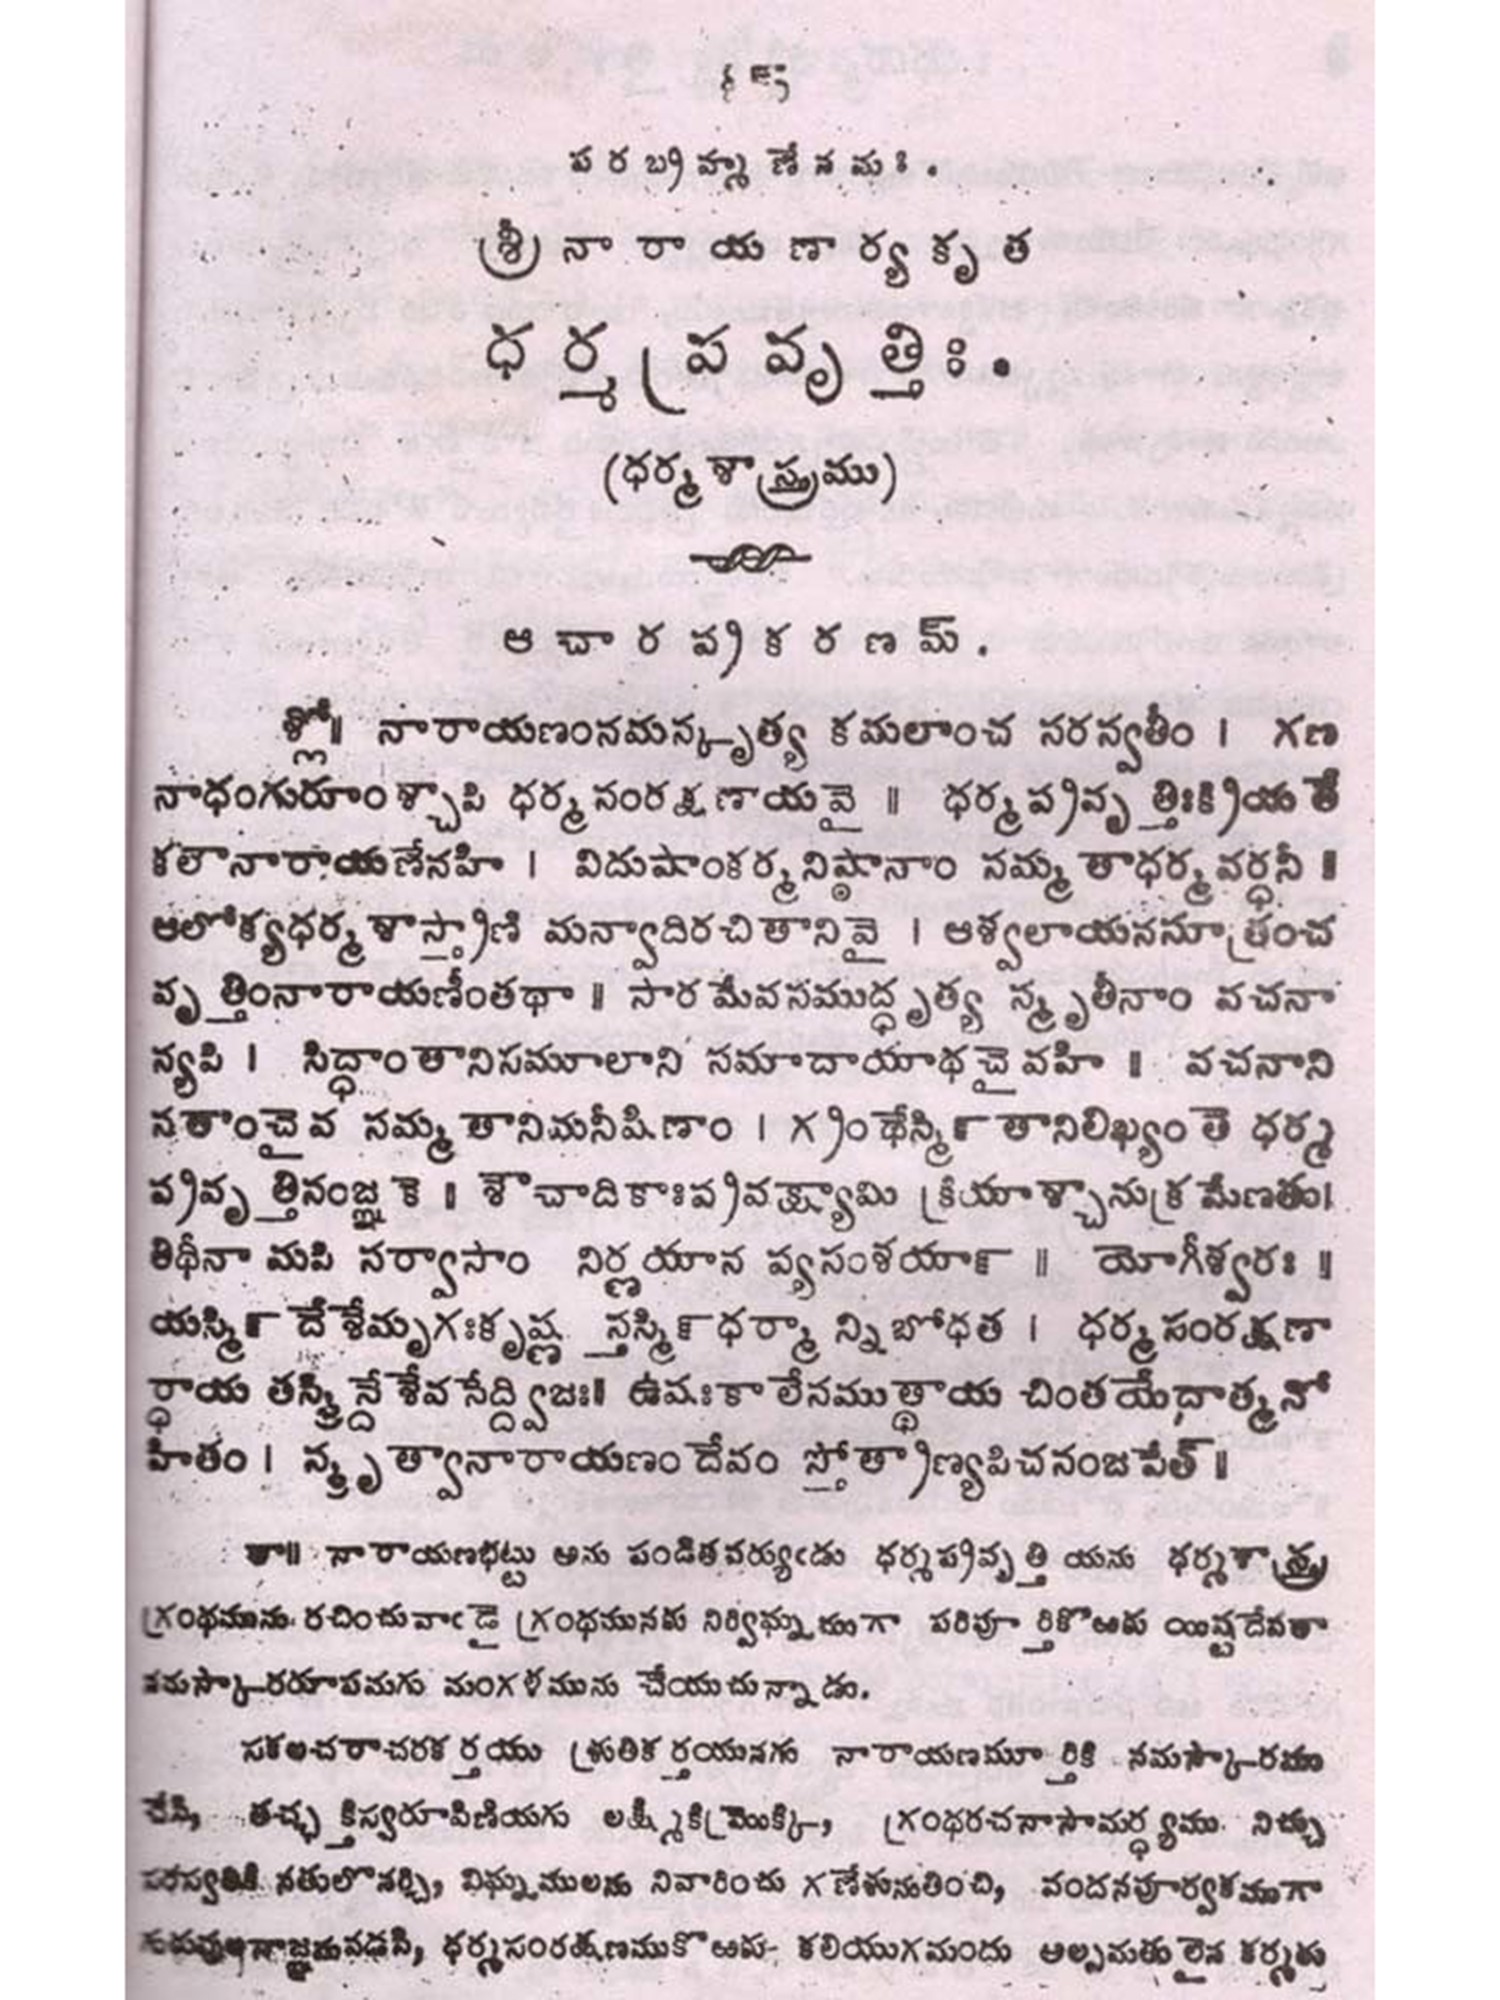 పరబ్రహ్మణేనమః.
శ్రీనారాయణార్యకృత
ధర్మప్రవృత్తిః.
(ధర్మశాస్త్రము)
ఆచారప్రకరణమ్.
శ్లో॥ నారాయణంనమస్కృత్య కమలాంచ సరస్వతీం । గణ
నాధంగురూంశ్చాపి ధర్మసంరక్షణాయవై ॥ ధర్మప్రవృత్తిఃక్రియతే
కలౌనారాయణేనహి । విదుషాంకర్మనిష్ఠానాం సమ్మతాధర్మవర్ధనీ ॥
ఆలోక్యధర్మశాస్త్రాణి మన్వాదిరచితానివై । ఆశ్వలాయనసూత్రంచ
వృత్తింనారాయణీంతథా ॥ సారమేవసముద్ధృత్య స్మృతీనాం వచనా
న్యపి । సిద్ధాంతానిసమూలాని సమాదాయాథచైవహి ॥ వచనాని
సతాంచైవ సమ్మతానిమనీషిణాం । గ్రంథేస్మిన్ తానిలిఖ్యంతె ధర్మ
ప్రవృత్తిసంజ్ఞకె ॥ శౌచాదికాఃప్రవక్ష్యామి క్రియాశ్చానుక్రమేణతు।
తిథీనా మపి సర్వాసాం నిర్ణయాన ప్యసంశయాన్ ॥ యోగీశ్వరః ॥
యస్మిన్ దేశేమృగఃకృష్ణ స్తస్మిన్ధర్మా న్నిబోధత । ధర్మసంరక్షణా
ర్థాయ తస్మిన్దేశేవసేద్ద్విజః॥ ఉషఃకాలేసముత్థాయ చింతయేదాత్మనో
హితం । స్మృత్వానారాయణందేవం స్తోత్రాణ్యపిచసంజపేత్॥
తా॥ నారాయణభట్టు అను పండితవర్యుఁడు ధర్మప్రవృత్తి యను ధర్మశాస్త్ర
గ్రంథమును రచించువాఁడై గ్రంథమునకు నిర్విఘ్నముగా పరిపూర్తికొఱకు యిష్టదేవతా
నమస్కారరూపమగు మంగళమును చేయుచున్నాడు.
సకలచరాచరకర్తయు శ్రుతికర్తయునగు నారాయణమూర్తికి నమస్కారము
చేసి, తచ్ఛక్తిస్వరూపిణియగు లక్ష్మికిమ్రొక్కి, గ్రంథరచనాసామర్థ్యము నిచ్చు
సరస్వతికి నతులొనర్చి, విఘ్నములను నివారించు గణేశునుతించి, వందనపూర్వకముగా
గురువులనాజ్ఞనుపడసి, ధర్మసంరక్షణముకొఱకు కలియుగమందు అల్పమతులైన కర్మఠు